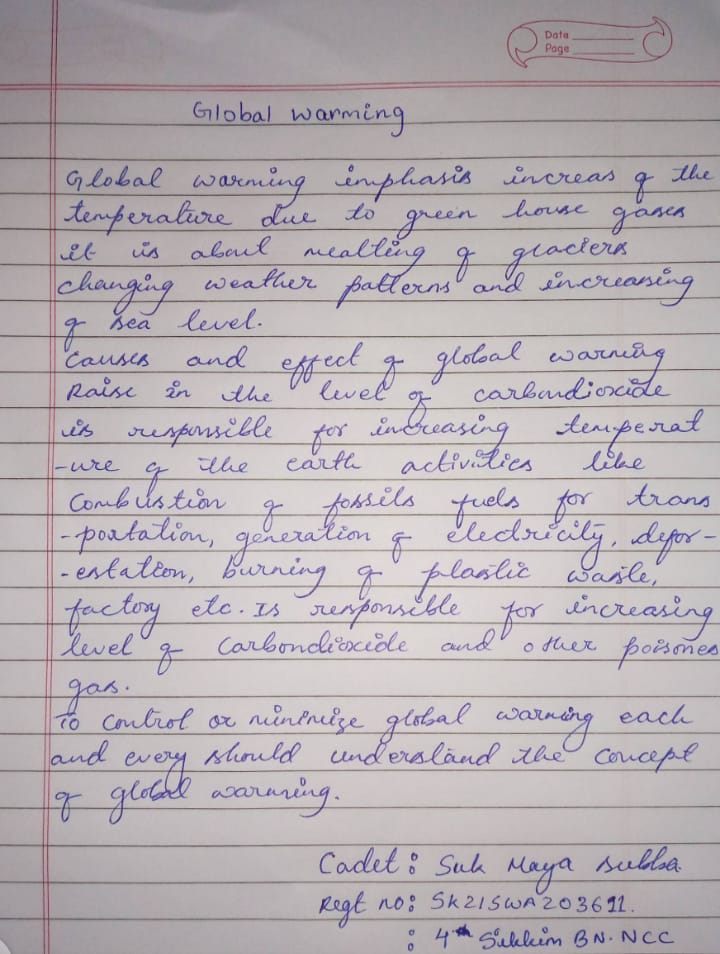 Date
Page
Global warming
Global warming emphasis increas of the
temperature due to green house gases
it is about mealting of glaciers
changing weather patterns and increasing
of sea level.
Causes and effect of global warming
Raise in the level of carbondioxide
is responsible for increasing temperat
-ure of the earth activities like
Combustion of fossils fuels for trans
-portation, generation of electricity, defor-
-estation, burning of plastic waste,
factory etc. Is responsible for increasing
level of Carbondioxide and other poisones
gas.
To control or minimize global warming each
and every should understand the concept
of global warming.
Cadet : Suk Maya Subba.
Regt no: SK21SWA203611.
: 4th Sikkim BN. NCC